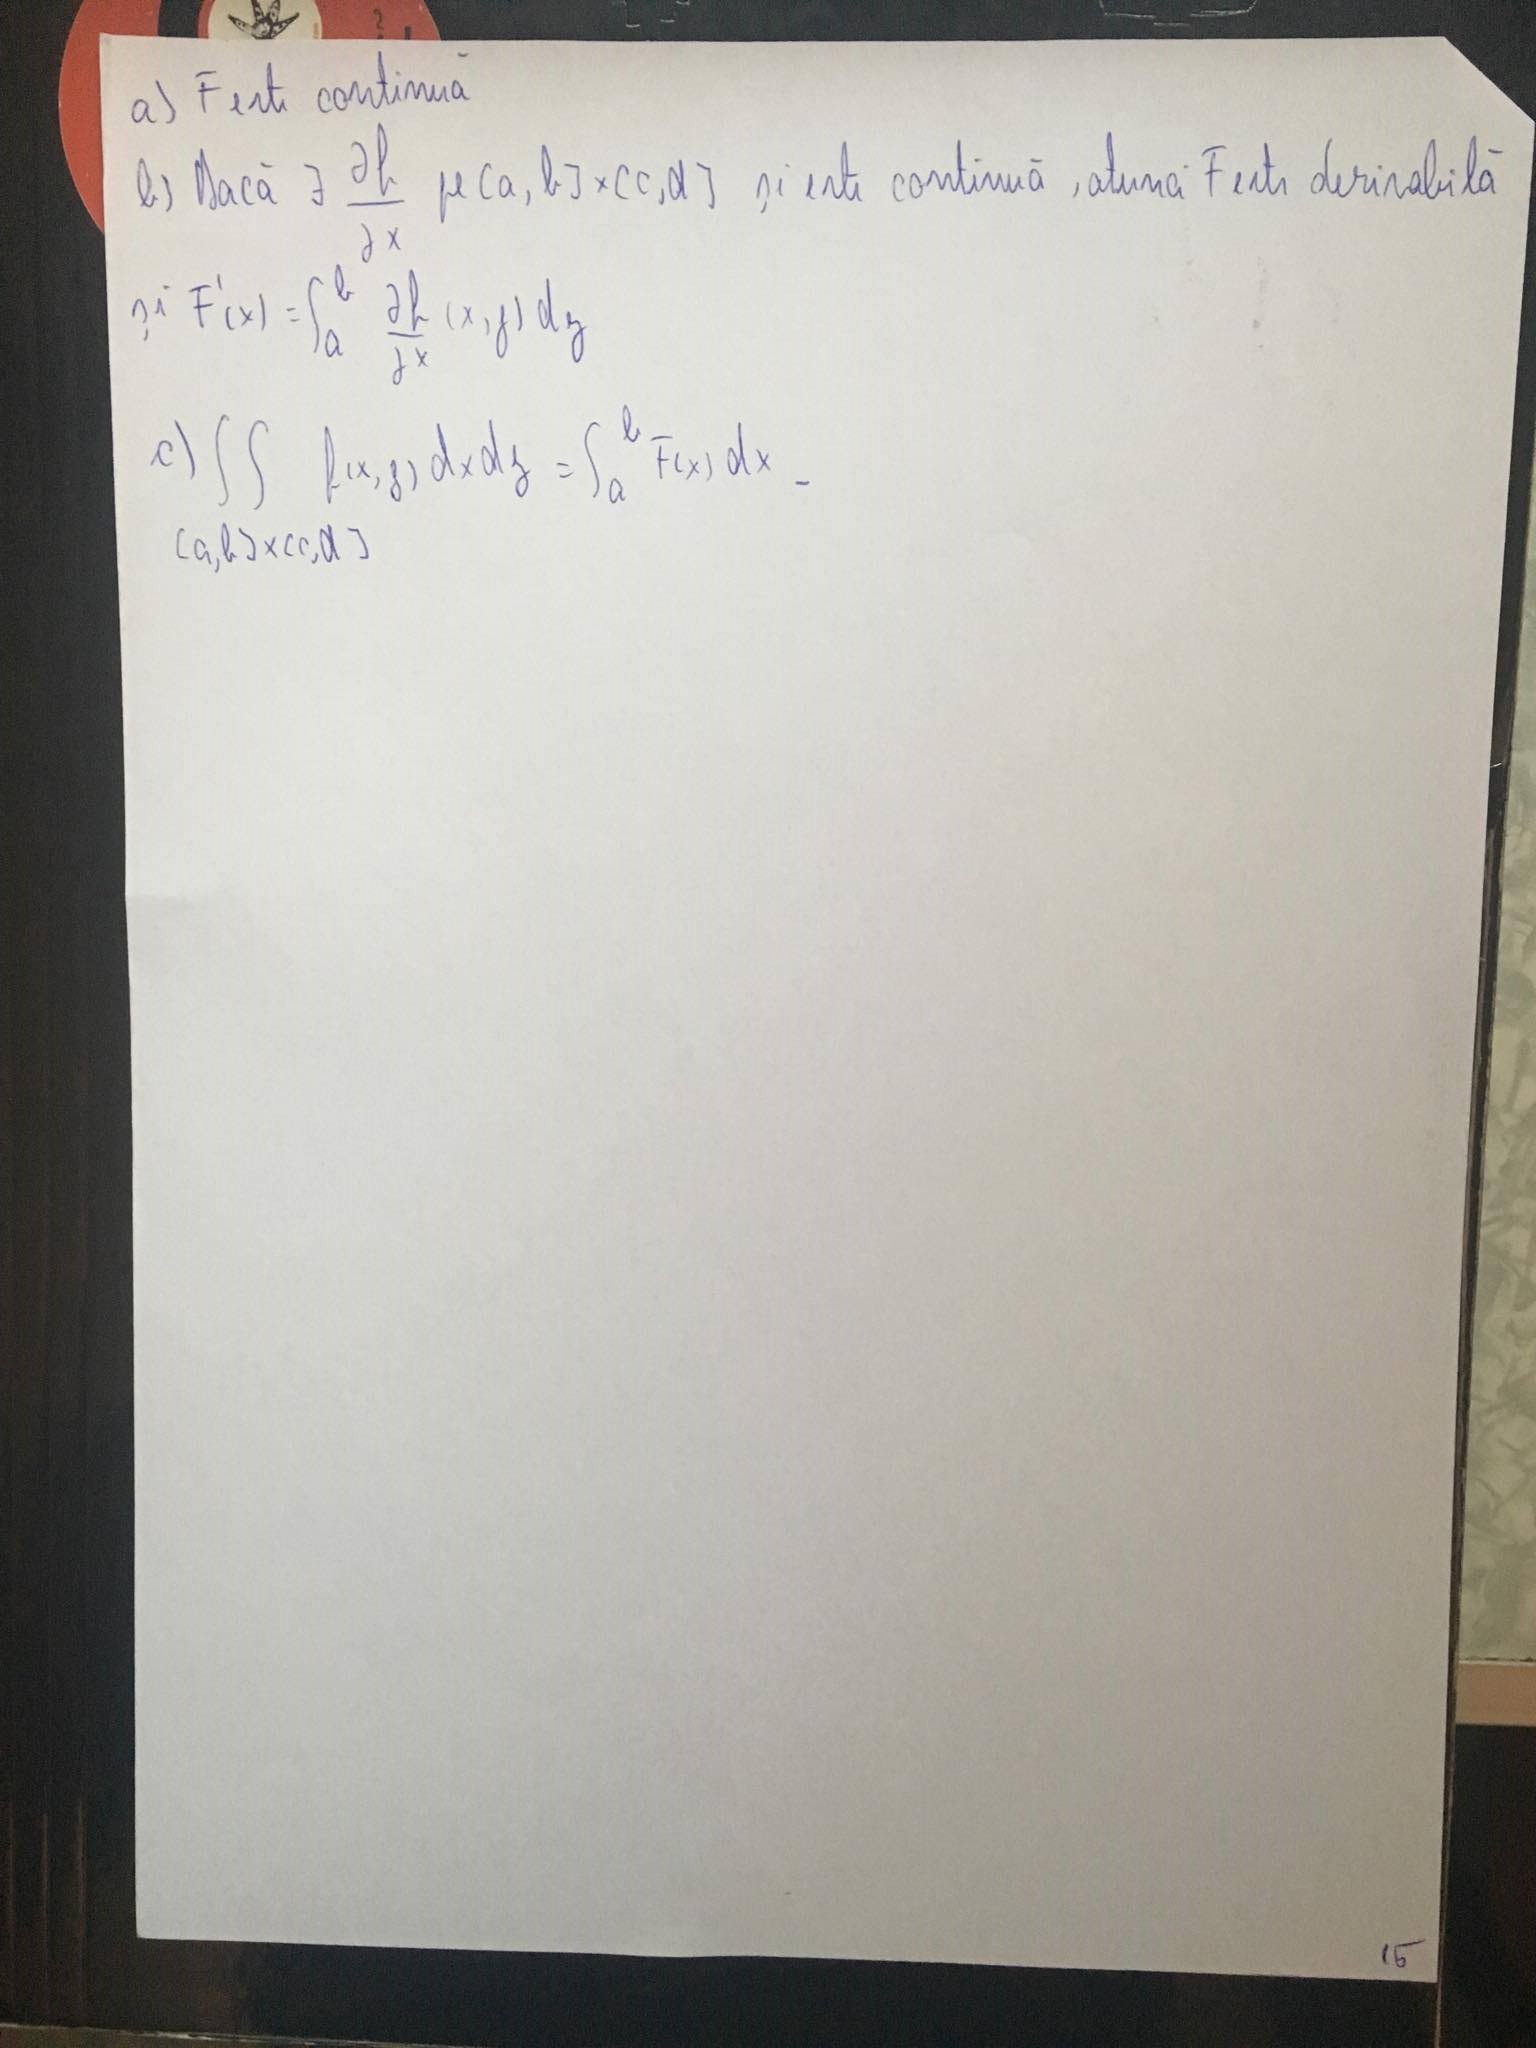 a) F este continuă
b) Dacă ∃ ∂f/∂x pe [a, b] × [c, d] și este continuă, atunci F este derivabilă
și F'(x) = ∫_a^b ∂f/∂x (x, y) dy
c) ∫∫ f(x, y) dx dy = ∫_a^b F(x) dx -
[a, b] × [c, d]
15